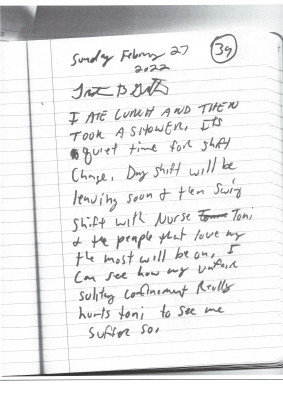 Sunday February 27
39
2022
I ATE LUNCH AND THEN
TOOK A SHOWER. ITS
quiet time for shift
Change. Day shift will be
leaving soon & then Swing
shift with Nurse Toni
& the people that love my
the most will be on. I
Can see how my unfair
solitary confinement Really
hurts toni to see me
suffer so.